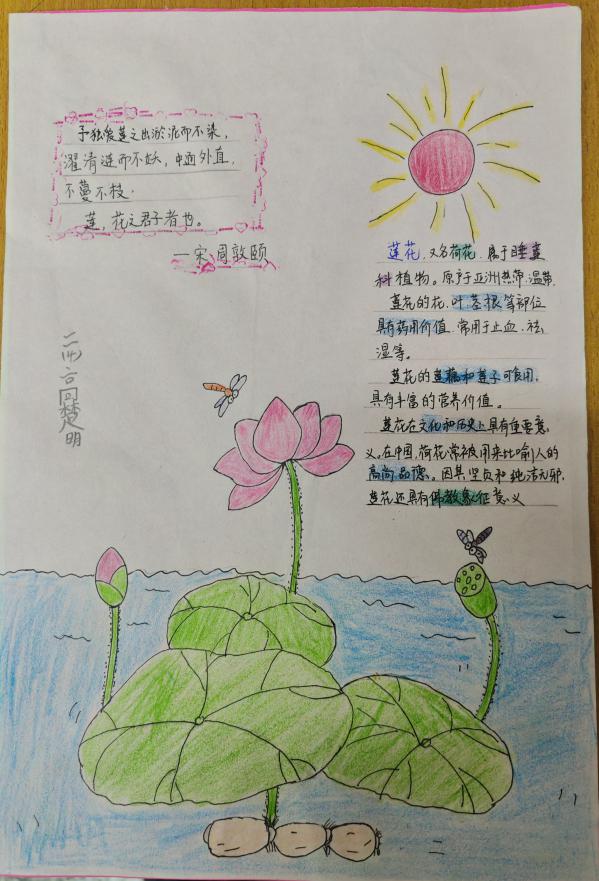 予独爱莲之出淤泥而不染，
濯清涟而不妖，中通外直，
不蔓不枝。
莲，花之君子者也。
—宋·周敦颐
莲花，又名荷花，属于睡莲
科植物。原产于亚洲热带、温带.
莲花的花、叶茎根等部位
具有药用价值，常用于止血、祛
湿等。
莲花的莲藕和莲子可食用，
具有丰富的营养价值。
莲花在文化和历史上具有重要意
义。在中国，荷花常被用来比喻人的
高尚品德。因其坚贞和纯洁无邪.
莲花还具有佛教象征意义